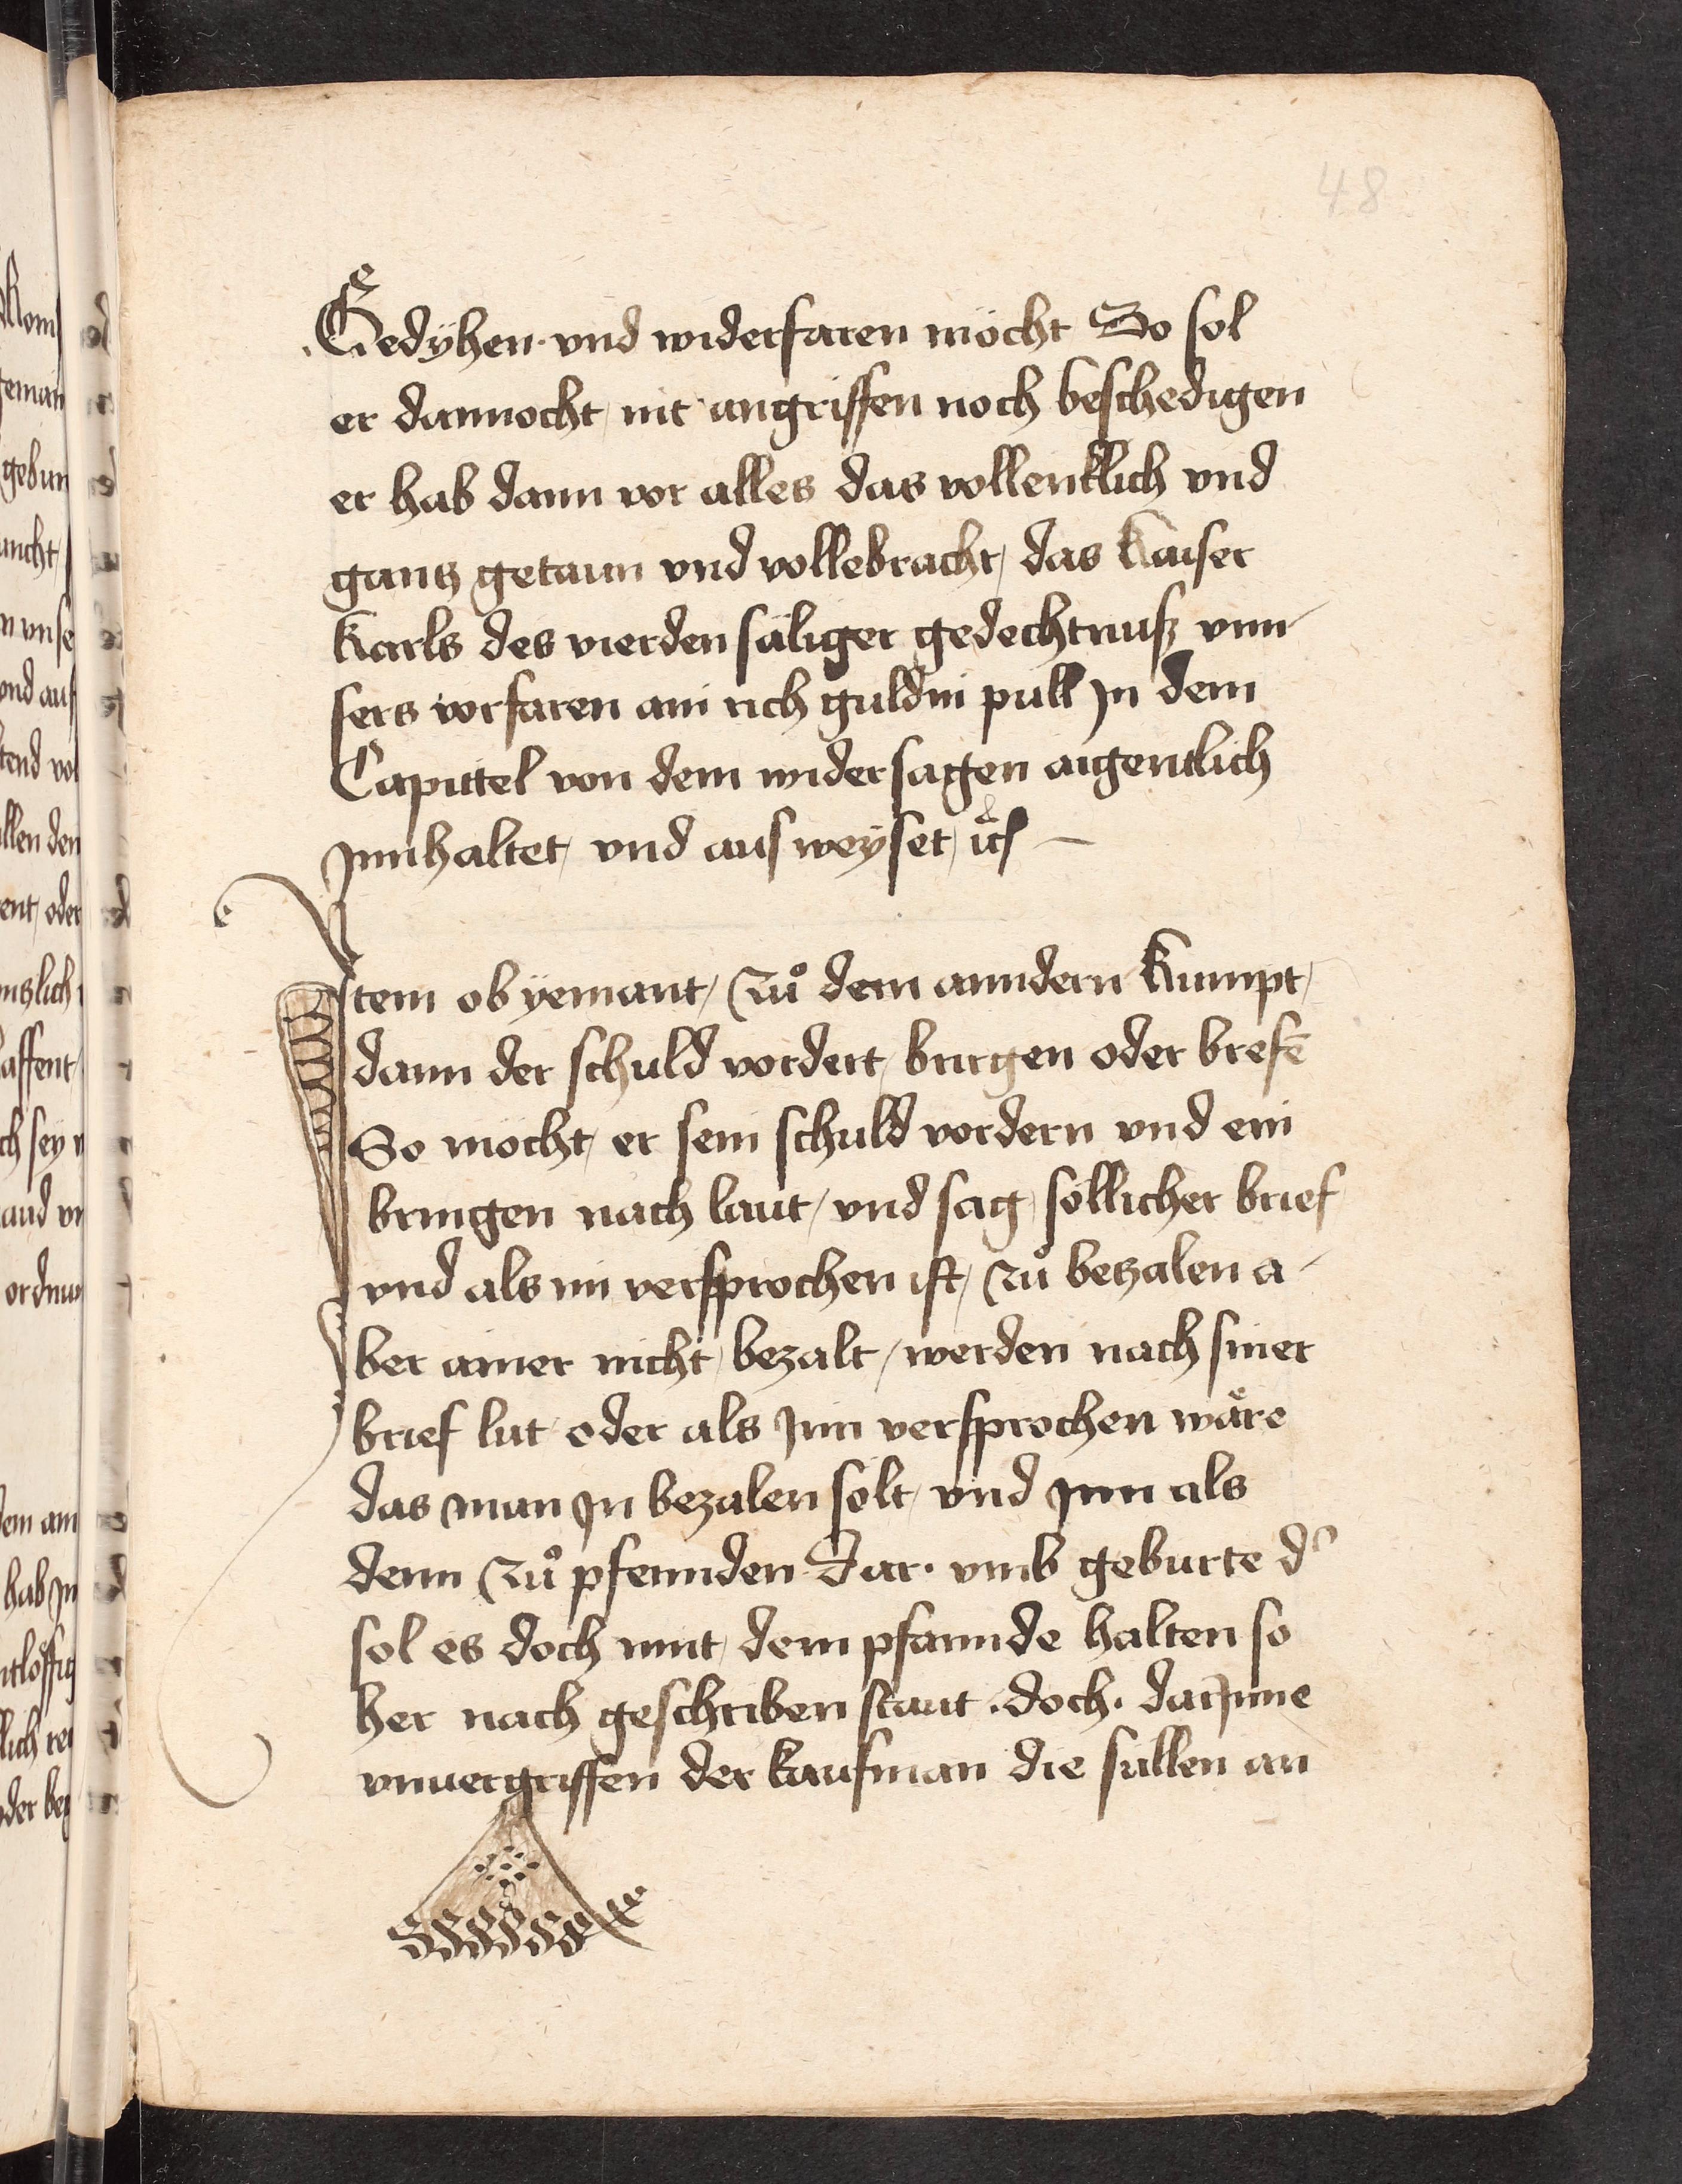 48
Gedÿhen · vnd widerfaren möcht So sol
er dannocht / nit angriffen noch beschedigen
er hab dann vor alles das vollenklich vnd
gantz getaun vnd vollebracht / das Kaiser
Karls des vierden säliger gedechtnusz vnn-
sers vorfaren am rich guldin pull Jn dem
Capittel von dem widersagen aigentlich
Jnnhaltet / vnd ausweÿset /
Jtem ob yemant / Zuͦ dem anndern Kumpt /
dann der schuld vordert / burgen oder brefē
So mocht / er sein schuld vordern vnd ein
bringen nach laut / vnd sag söllicher brief
vnd als im versprochen ist / Zuͦ betzalen a-
ber ainer nicht / bezalt / werden nach siner
brief lut / oder als Jm versprochen wäre
das man Jn bezalen sölt / vnd Jnn als
denn Zuͦ pfennden Dar · vmb geburte d'
sol es doch mit / dem pfannde halten so
her nach geschriben staut · doch · darJnne
vnuergriffen der kaufman die süllen an